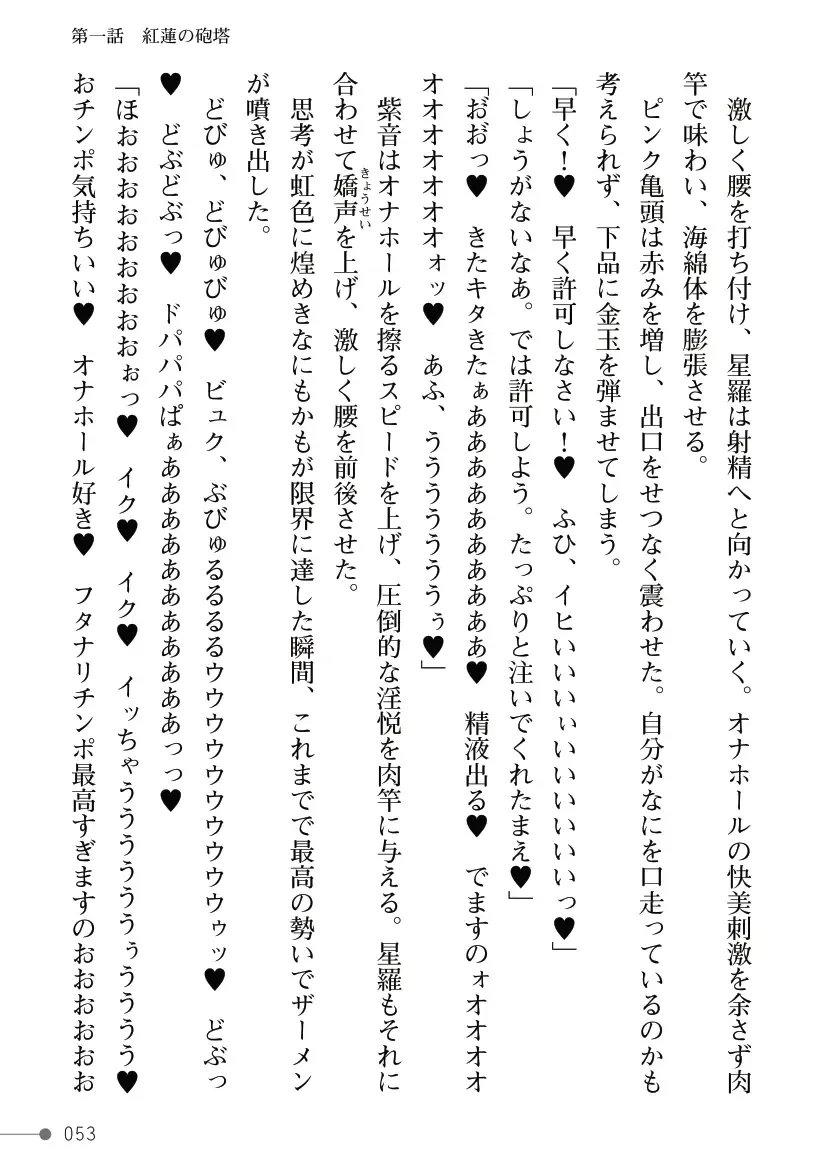 第一話　紅蓮の砲塔
　激しく腰を打ち付け、星羅は射精へと向かっていく。オナホールの快美刺激を余さず肉
竿で味わい、海綿体を膨張させる。
　ピンク亀頭は赤みを増し、出口をせつなく震わせた。自分がなにを口走っているのかも
考えられず、下品に金玉を弾ませてしまう。
「早く！♥　早く許可しなさい！♥　ふひ、イヒいいいぃいいいいいいいっ♥」
「しょうがないなぁ。では許可しよう。たっぷりと注いでくれたまえ♥」
「お゛お゛っ♥　きたキタきたぁあああああああああああ♥　精液出る♥　でますのォオオオオ
オオオオオオオオォッ♥　あふ、ううううううううぅ♥」
　紫音はオナホールを擦るスピードを上げ、圧倒的な淫悦を肉竿に与える。星羅もそれに
合わせて嬌声（きょうせい）を上げ、激しく腰を前後させた。
　思考が虹色に煌めきなにもかもが限界に達した瞬間、これまでで最高の勢いでザーメン
が噴き出した。
　どびゅ、どびゅびゅ♥　ビュク、ぶびゅるるるるウウウウウウウウウウゥッ♥　どぶっ
♥　どぶどぶっ♥　ドパパパぱぁああああああああああああっっ♥
「ほぉおおおおおおおおおぉっ♥　イク♥　イク♥　イッちゃうううううううぅうううう♥
おチンポ気持ちいい♥　オナホール好き♥　フタナリチンポ最高すぎますのおおおおおお
053